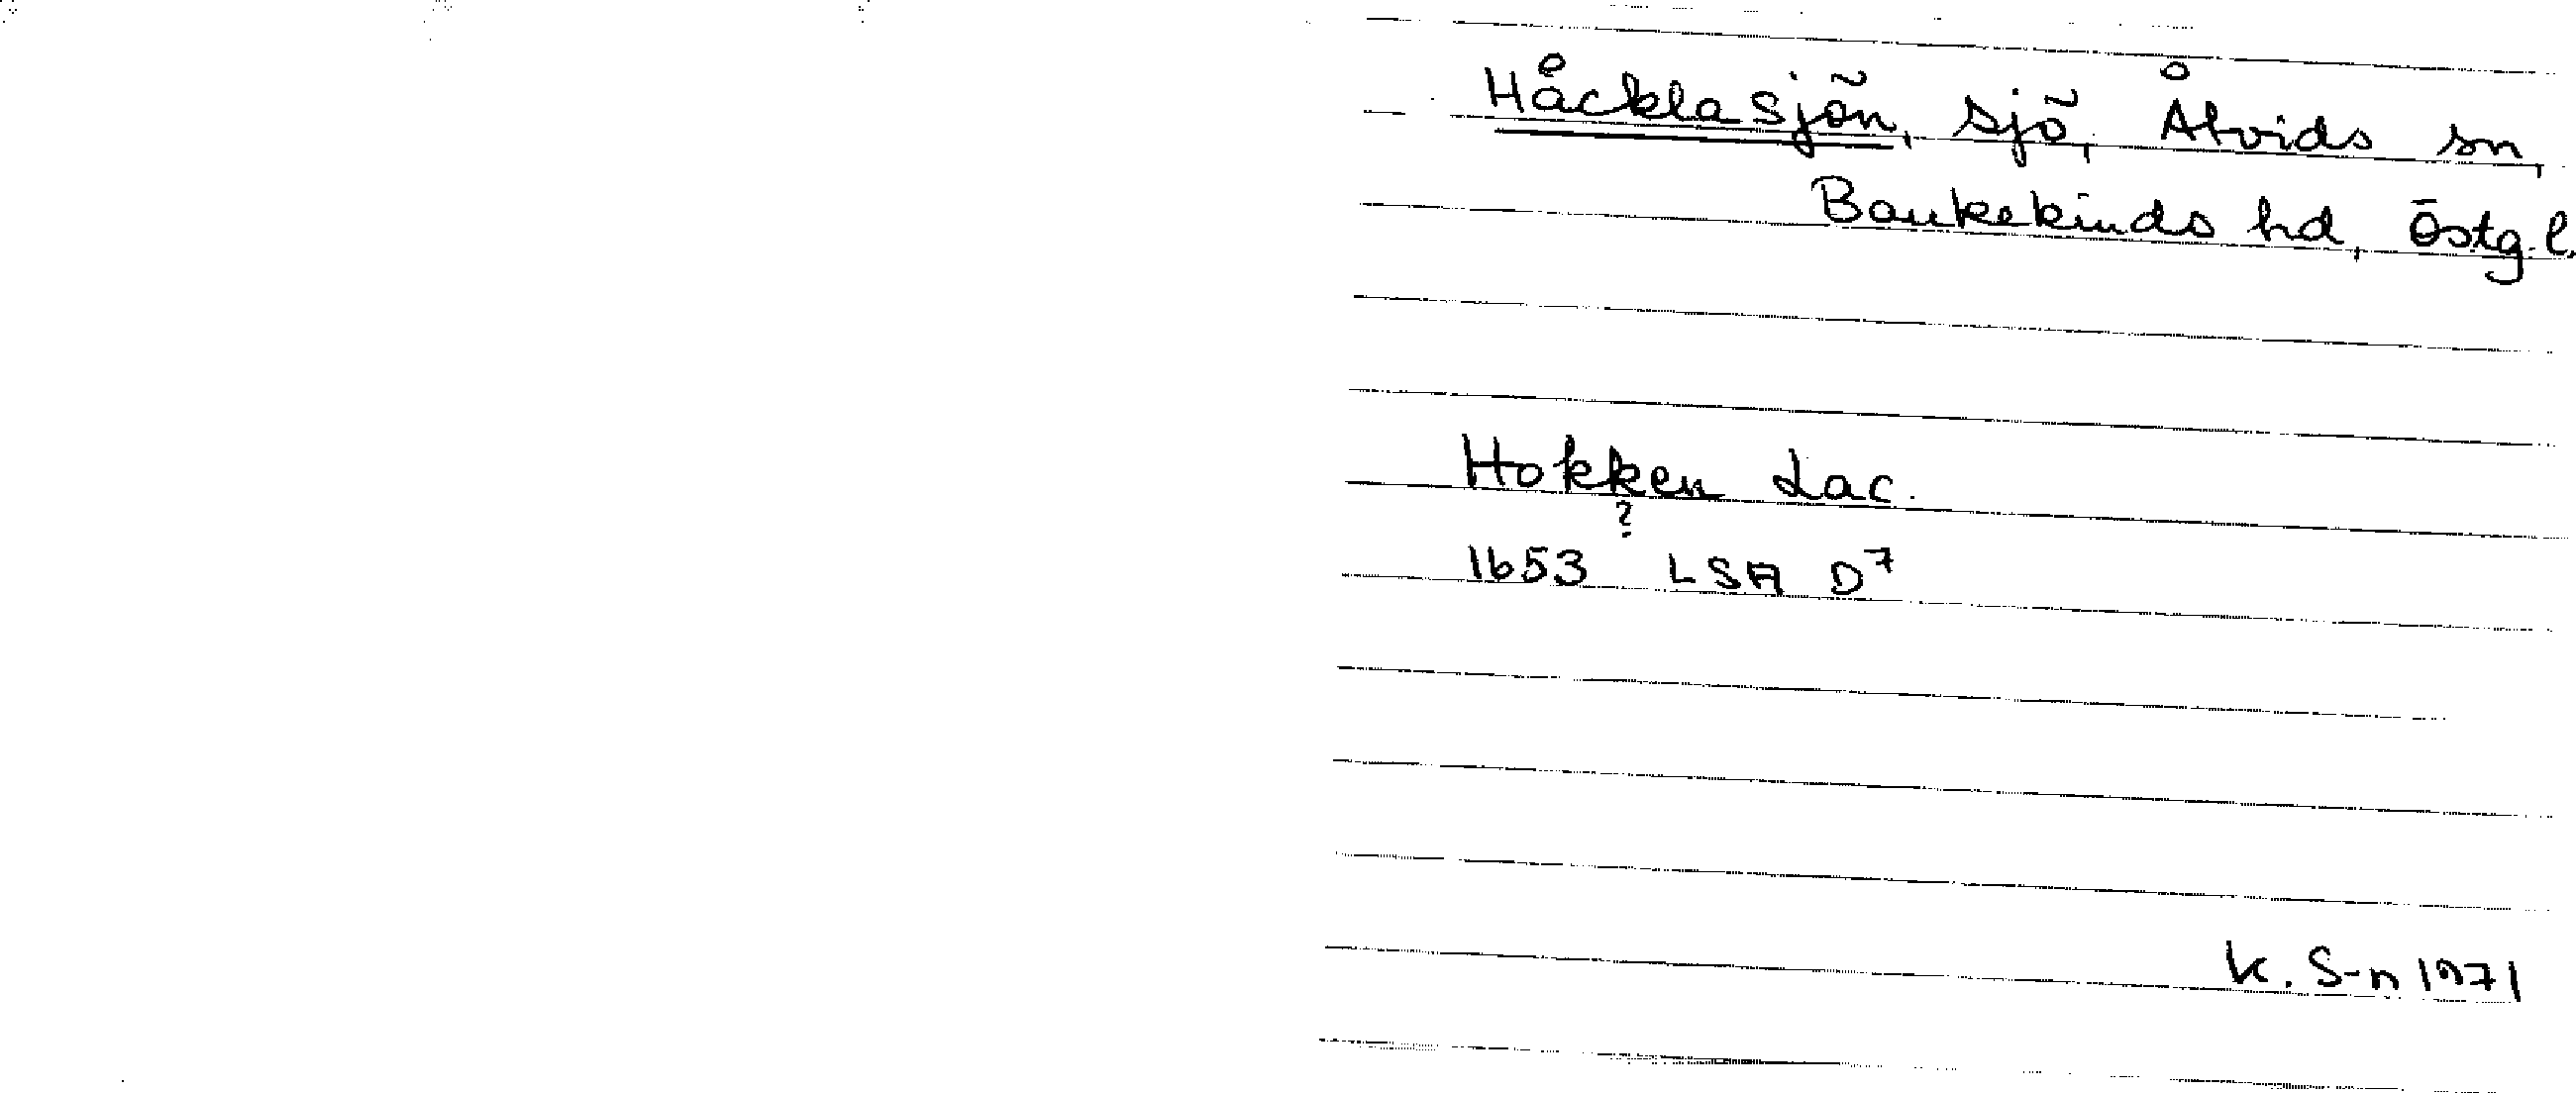 Håcklasjön, sjö, Åtvids sn,
Bankekinds hd, Östg. l.
Hokken Lac.
?
1653 LSA D⁷
K. S-n 1971